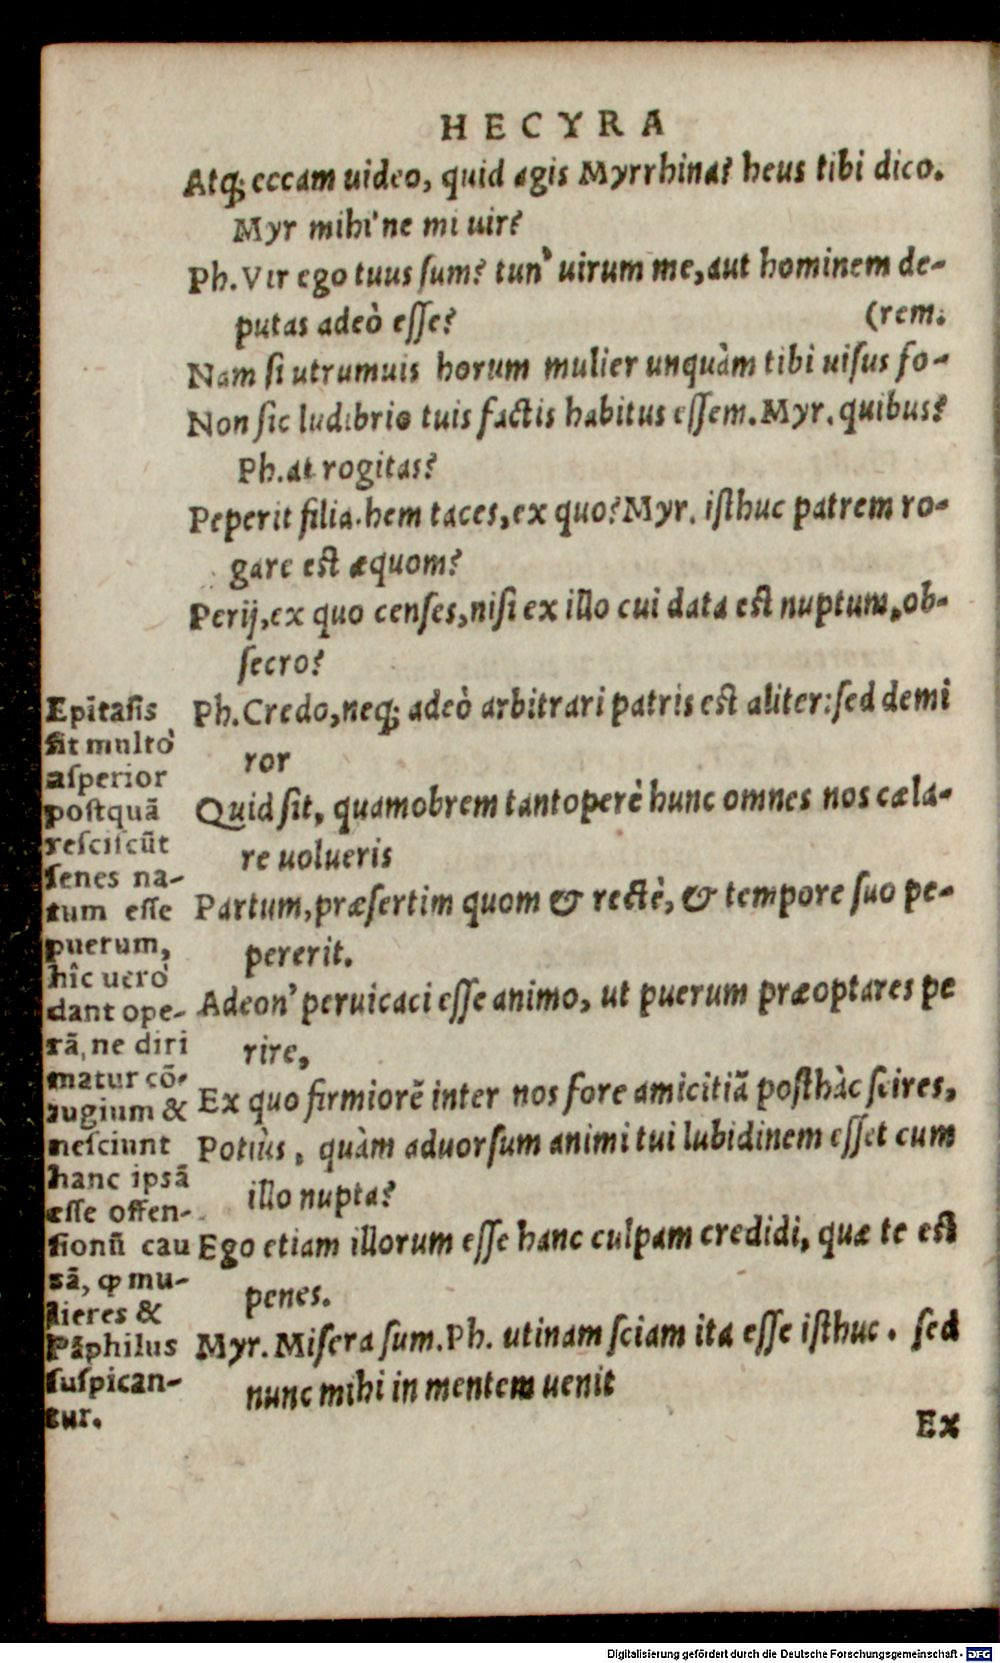 HECYRA
Atq; eccam uideo, quid agis Myrrhina? heus tibi dico.
Myr mihi'ne mi uir?
Ph. Vir ego tuus ſum? tun' uirum me, aut hominem de-
putas adeò eſſe? (rem.
Nam ſi utrumuis horum mulier unquàm tibi uiſus fo-
Non ſic ludibrio tuis factis habitus eſſem. Myr. quibus?
Ph. at rogitas?
Peperit filia. hem taces, ex quo? Myr. iſthuc patrem ro-
gare eſt æquom?
Perij, ex quo cenſes, niſi ex illo cui data eſt nuptum, ob-
ſecro?
Ph. Credo, neq; adeò arbitrari patris eſt aliter: ſed demi
ror
Quid ſit, quamobrem tantoperè hunc omnes nos cæla-
re uolueris
Partum, præſertim quom & rectè, & tempore ſuo pe-
pererit.
Adeon' peruicaci eſſe animo, ut puerum præoptares pe
rire,
Ex quo firmiorẽ inter nos fore amicitiã poſthàc ſcires,
Potiùs, quàm aduorſum animi tui lubidinem eſſet cum
illo nupta?
Ego etiam illorum eſſe hanc culpam credidi, quæ te eſt
penes.
Myr. Miſera ſum. Ph. utinam ſciam ita eſſe iſthuc. ſed
nunc mihi in mentem uenit
Ex
Epitaſis
fit multò
aſperior
poſtquã
reſciſcũt
ſenes na-
tum eſſe
puerum,
hîc uerò
dant ope-
rã, ne diri
matur cõ-
iugium &
neſciunt
hanc ipsã
eſſe offen-
ſionũ cau
sã, ꝙ mu-
lieres &
Pãphilus
ſuſpican-
tur.
Digitalisierung gefördert durch die Deutsche Forschungsgemeinschaft - DFG